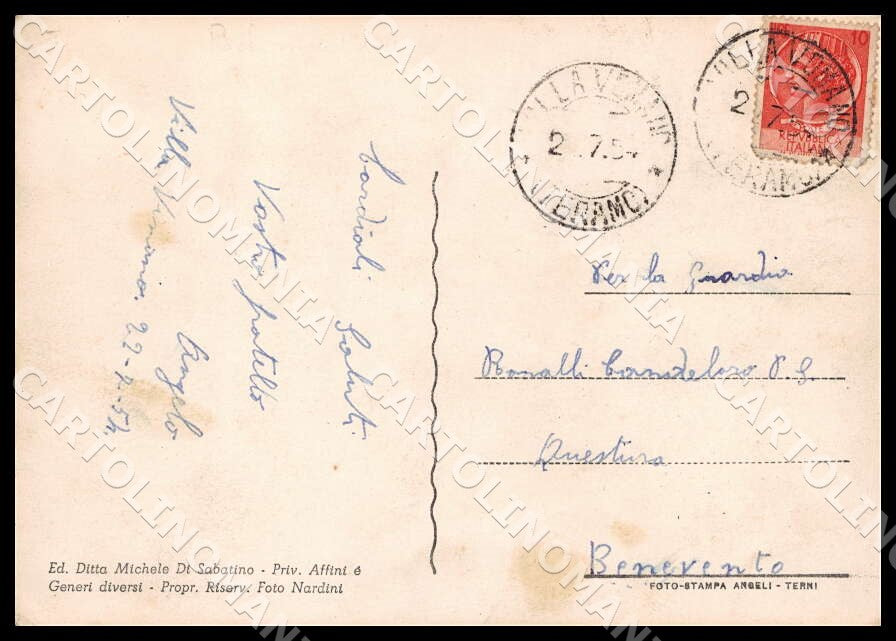 Cordiali Saluti
Vostro fratello
Angelo
Villa Vomano 22-7-54
VILLA VOMANO
2 .7.54
(TERAMO)
VILLA VOMANO
2 7
(TERAMO)
10
REPUBBLICA
ITALIANA
Per la Guardia
P. S.
Questura
Benevento
Ed. Ditta Michele Di Sabatino - Priv. Affini é
Generi diversi - Propr. Riserv. Foto Nardini
FOTO-STAMPA ANGELI - TERNI
CARTOLINOMANIA